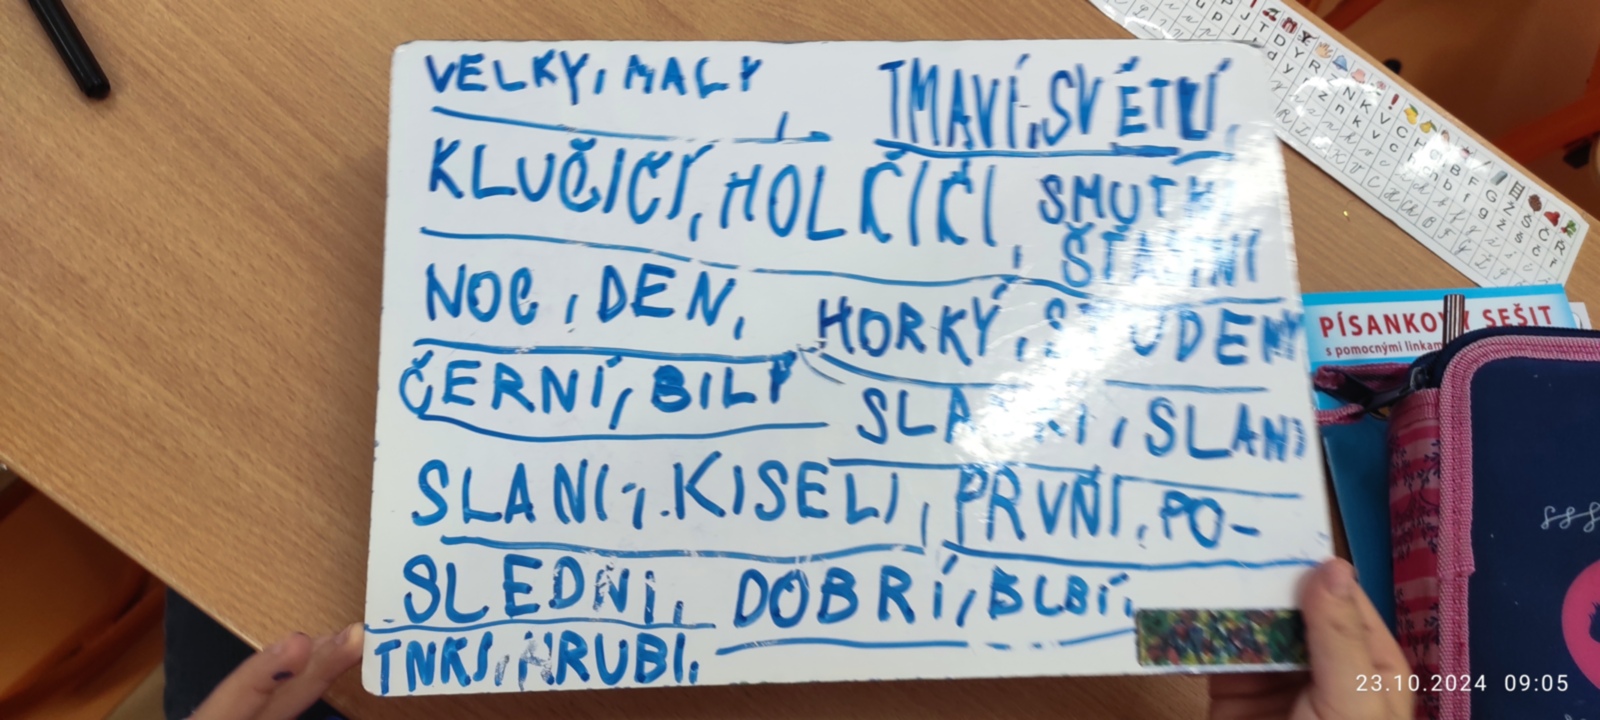 VELKY, MALY
TMAVÍ, SVĚTLÍ,
KLUČIČÍ, HOLČIČÍ,
SMUTNÍ
ŠŤASNÍ
NOC, DEN,
HORKÝ, STUDENÝ
ČERNÍ, BILÝ
SLADKÍ, SLANÍ
SLANI, KISELI, PRVNÍ, PO-
SLEDNI, DOBRÍ, BLBÍ,
TNKI, HRUBI,
PÍSANKOVÝ SEŠIT
s pomocnými linkami
23.10.2024 09:05